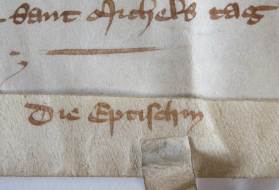 sant Michels tag
Die Eptischin